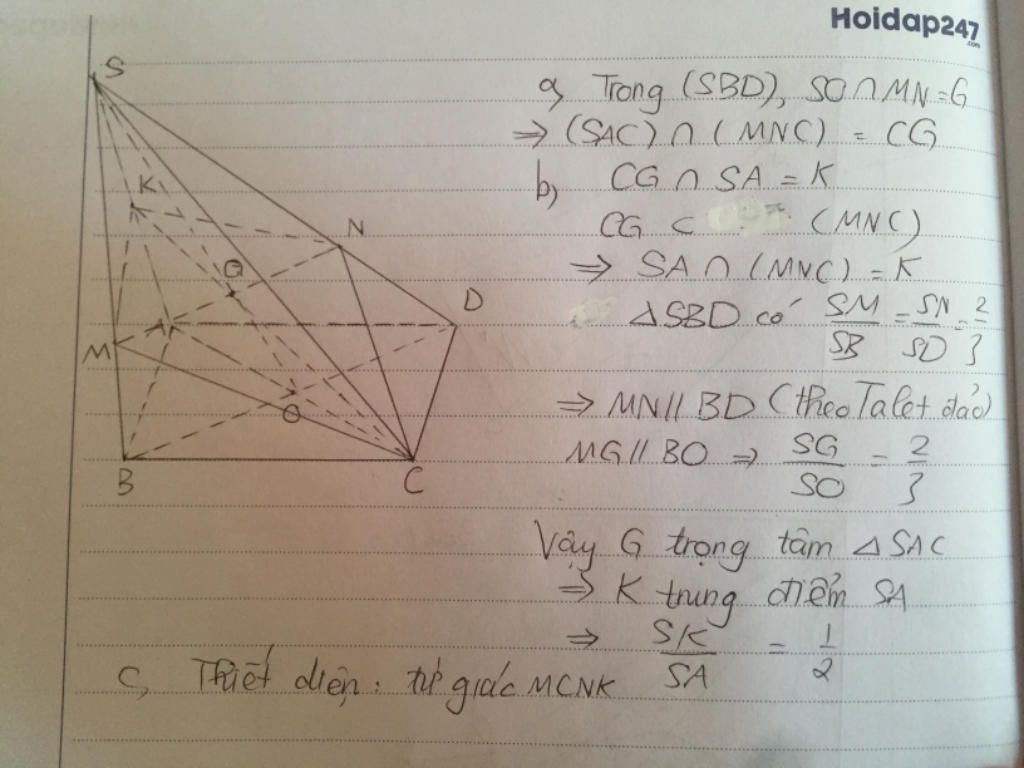 Hoidap247
.com
S
K
N
G
D
A
M
O
B
C
a, Trong (SBD), SO ∩ MN = G
⇒ (SAC) ∩ (MNC) = CG
b, CG ∩ SA = K
CG ⊂ (MNC)
⇒ SA ∩ (MNC) = K
△SBD có SM/SB = SN/SD = 2/3
⇒ MN // BD (theo Talet đảo)
MG // BO ⇒ SG/SO = 2/3
Vậy G trọng tâm △SAC
⇒ K trung điểm SA
⇒ SK/SA = 1/2
c, Thiết diện: tứ giác MCNK